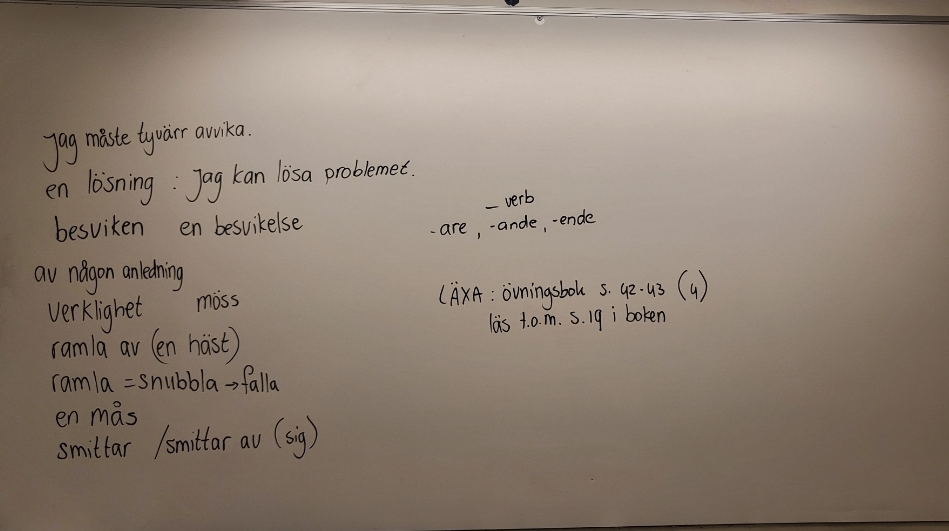 Jag måste tyvärr avvika.
en lösning : Jag kan lösa problemet.
besviken en besvikelse
av någon anledning
verklighet möss
ramla av (en häst)
ramla = snubbla → falla
en mås
smittar /smittar av (sig)
– verb
-are, -ande, -ende
LÄXA : övningsbok s. 42-43 (4)
läs t.o.m. s.19 i boken